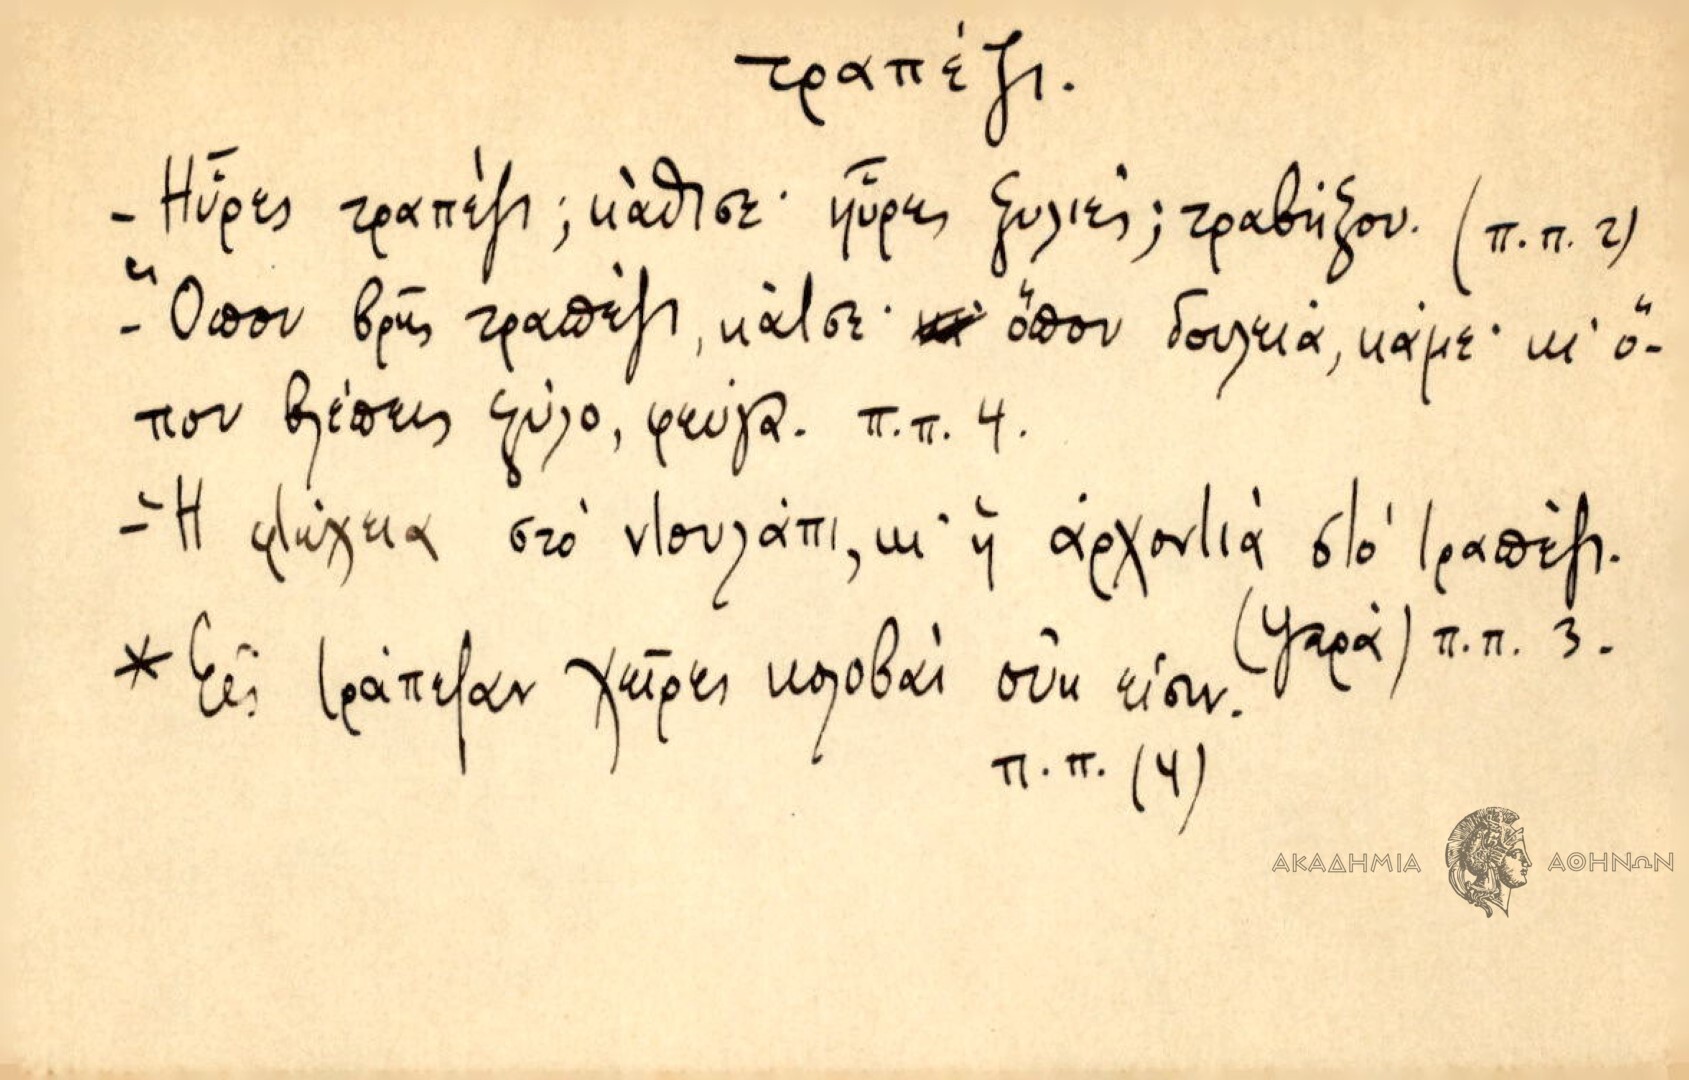 τραπέζι.
- Ηὗρες τραπέζι; κάθισε· ηὗρες ξυλιές; τραβήξου. (π.π. 2)
- Ὅπου βρῇς τραπέζι, κάτσε· ὅπου δουλειά, κάμε· κι' ὅ-
που βλέπεις ξύλο, φεύγα. π.π. 4.
- Ἡ φτώχεια στὸ ντουλάπι, κι' ἡ ἀρχοντιὰ στὸ τραπέζι.
(Ψαρὰ) π.π. 3.
* Εἰς τράπεζαν χεῖρες κολοβαὶ οὐκ εἰσιν.
π.π. (4)
ΑΚΑΔΗΜΙΑ ΑΘΗΝΩΝ